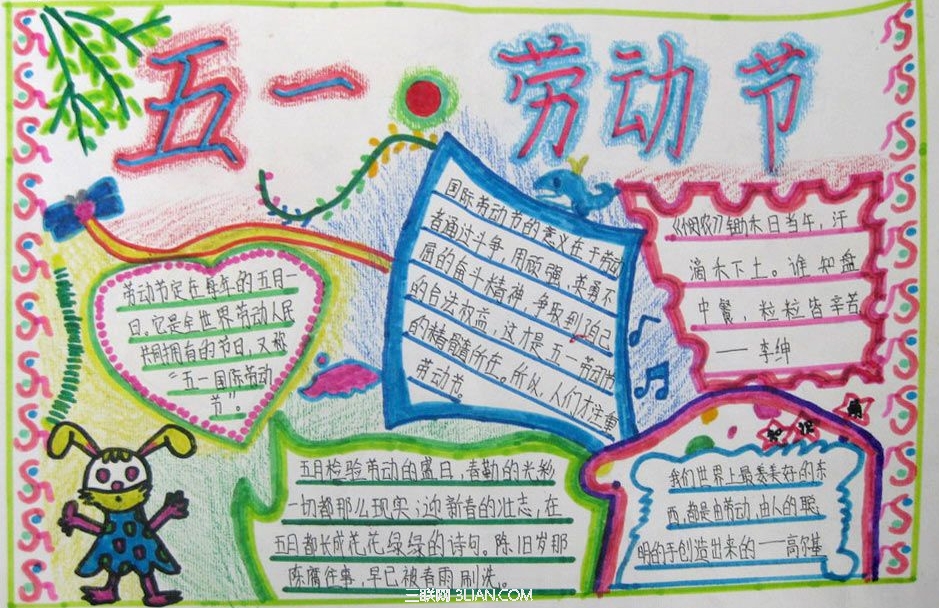 五一劳动节
劳动节定在每年的五月一
日。它是全世界劳动人民
共同拥有的节日,又称
“五一国际劳动
节”。
国际劳动节的意义在于劳动
者通过斗争,用顽强、英勇不
屈的奋斗精神,争取到了自己
的合法权益,这才是五一劳动节
的精髓所在。所以,人们才注重
劳动节。
《悯农》锄禾日当午,汗
滴禾下土。谁知盘
中餐,粒粒皆辛苦
——李绅
五月检验劳动的盛日,春勤的光彩
一切都那么现实;迎新春的壮志,在
五月都长成花花绿绿的诗句。陈旧岁那
陈腐往事,早已被春雨刷洗。
我们世界上最美好的东
西,都是由劳动,由人的聪
明的手创造出来的——高尔基
三联网 3LIAN.COM